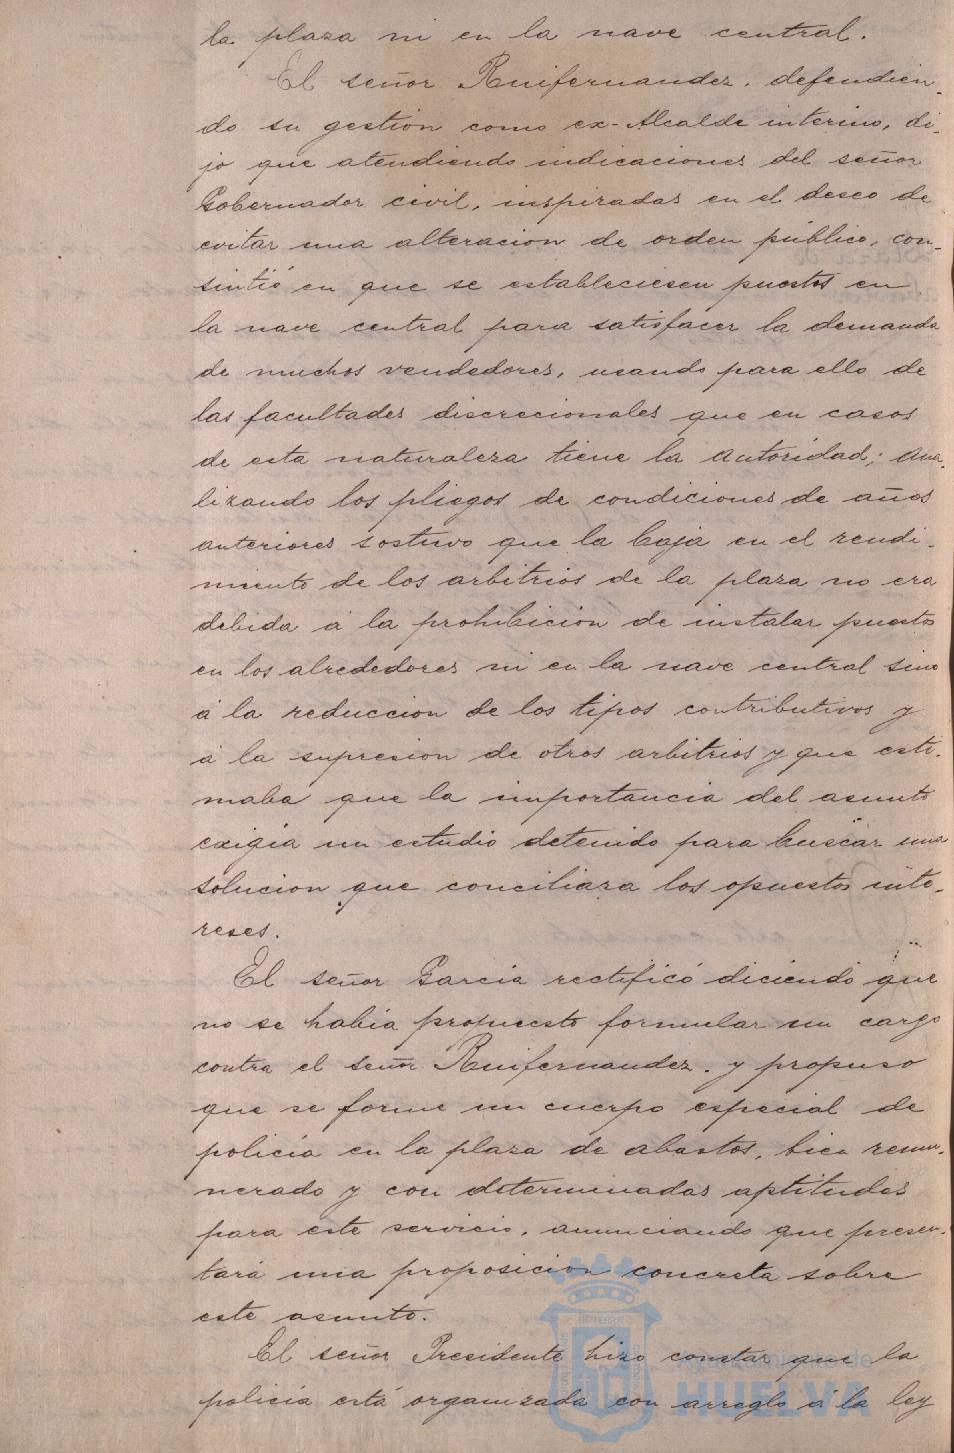 la plaza ni en la nave central.
El señor Ruifernandez, defendien-
do su gestion como ex-Alcalde interino, di-
jo que atendiendo indicaciones del señor
Gobernador civil, inspiradas en el deseo de
evitar una alteracion de orden público, con-
sintió en que se estableciesen puestos en
la nave central para satisfacer la demanda
de muchos vendedores, usando para ello de
las facultades discrecionales que en casos
de esta naturaleza tiene la autoridad; ana-
lizando los pliegos de condiciones de años
anteriores sostuvo que la baja en el rendi-
miento de los arbitrios de la plaza no era
debida á la prohibicion de instalar puestos
en los alrededores ni en la nave central sino
á la reduccion de los tipos contributivos y
á la supresion de otros arbitrios y que esti-
maba que la importancia del asunto
exigia un estudio detenido para buscar una
solucion que conciliara los opuestos inte-
reses.
El señor Garcia rectificó diciendo que
no se habia propuesto formular un cargo
contra el señor Ruifernandez. y propuso
que se forme un cuerpo especial de
policía en la plaza de abastos, bien remu-
nerado y con determinadas aptitudes
para este servicio, anunciando que presen-
tará una proposicion concreta sobre
este asunto.
El señor Presidente hizo constar que la
policía está organizada con arreglo á la ley
Ayuntamiento de
HUELVA